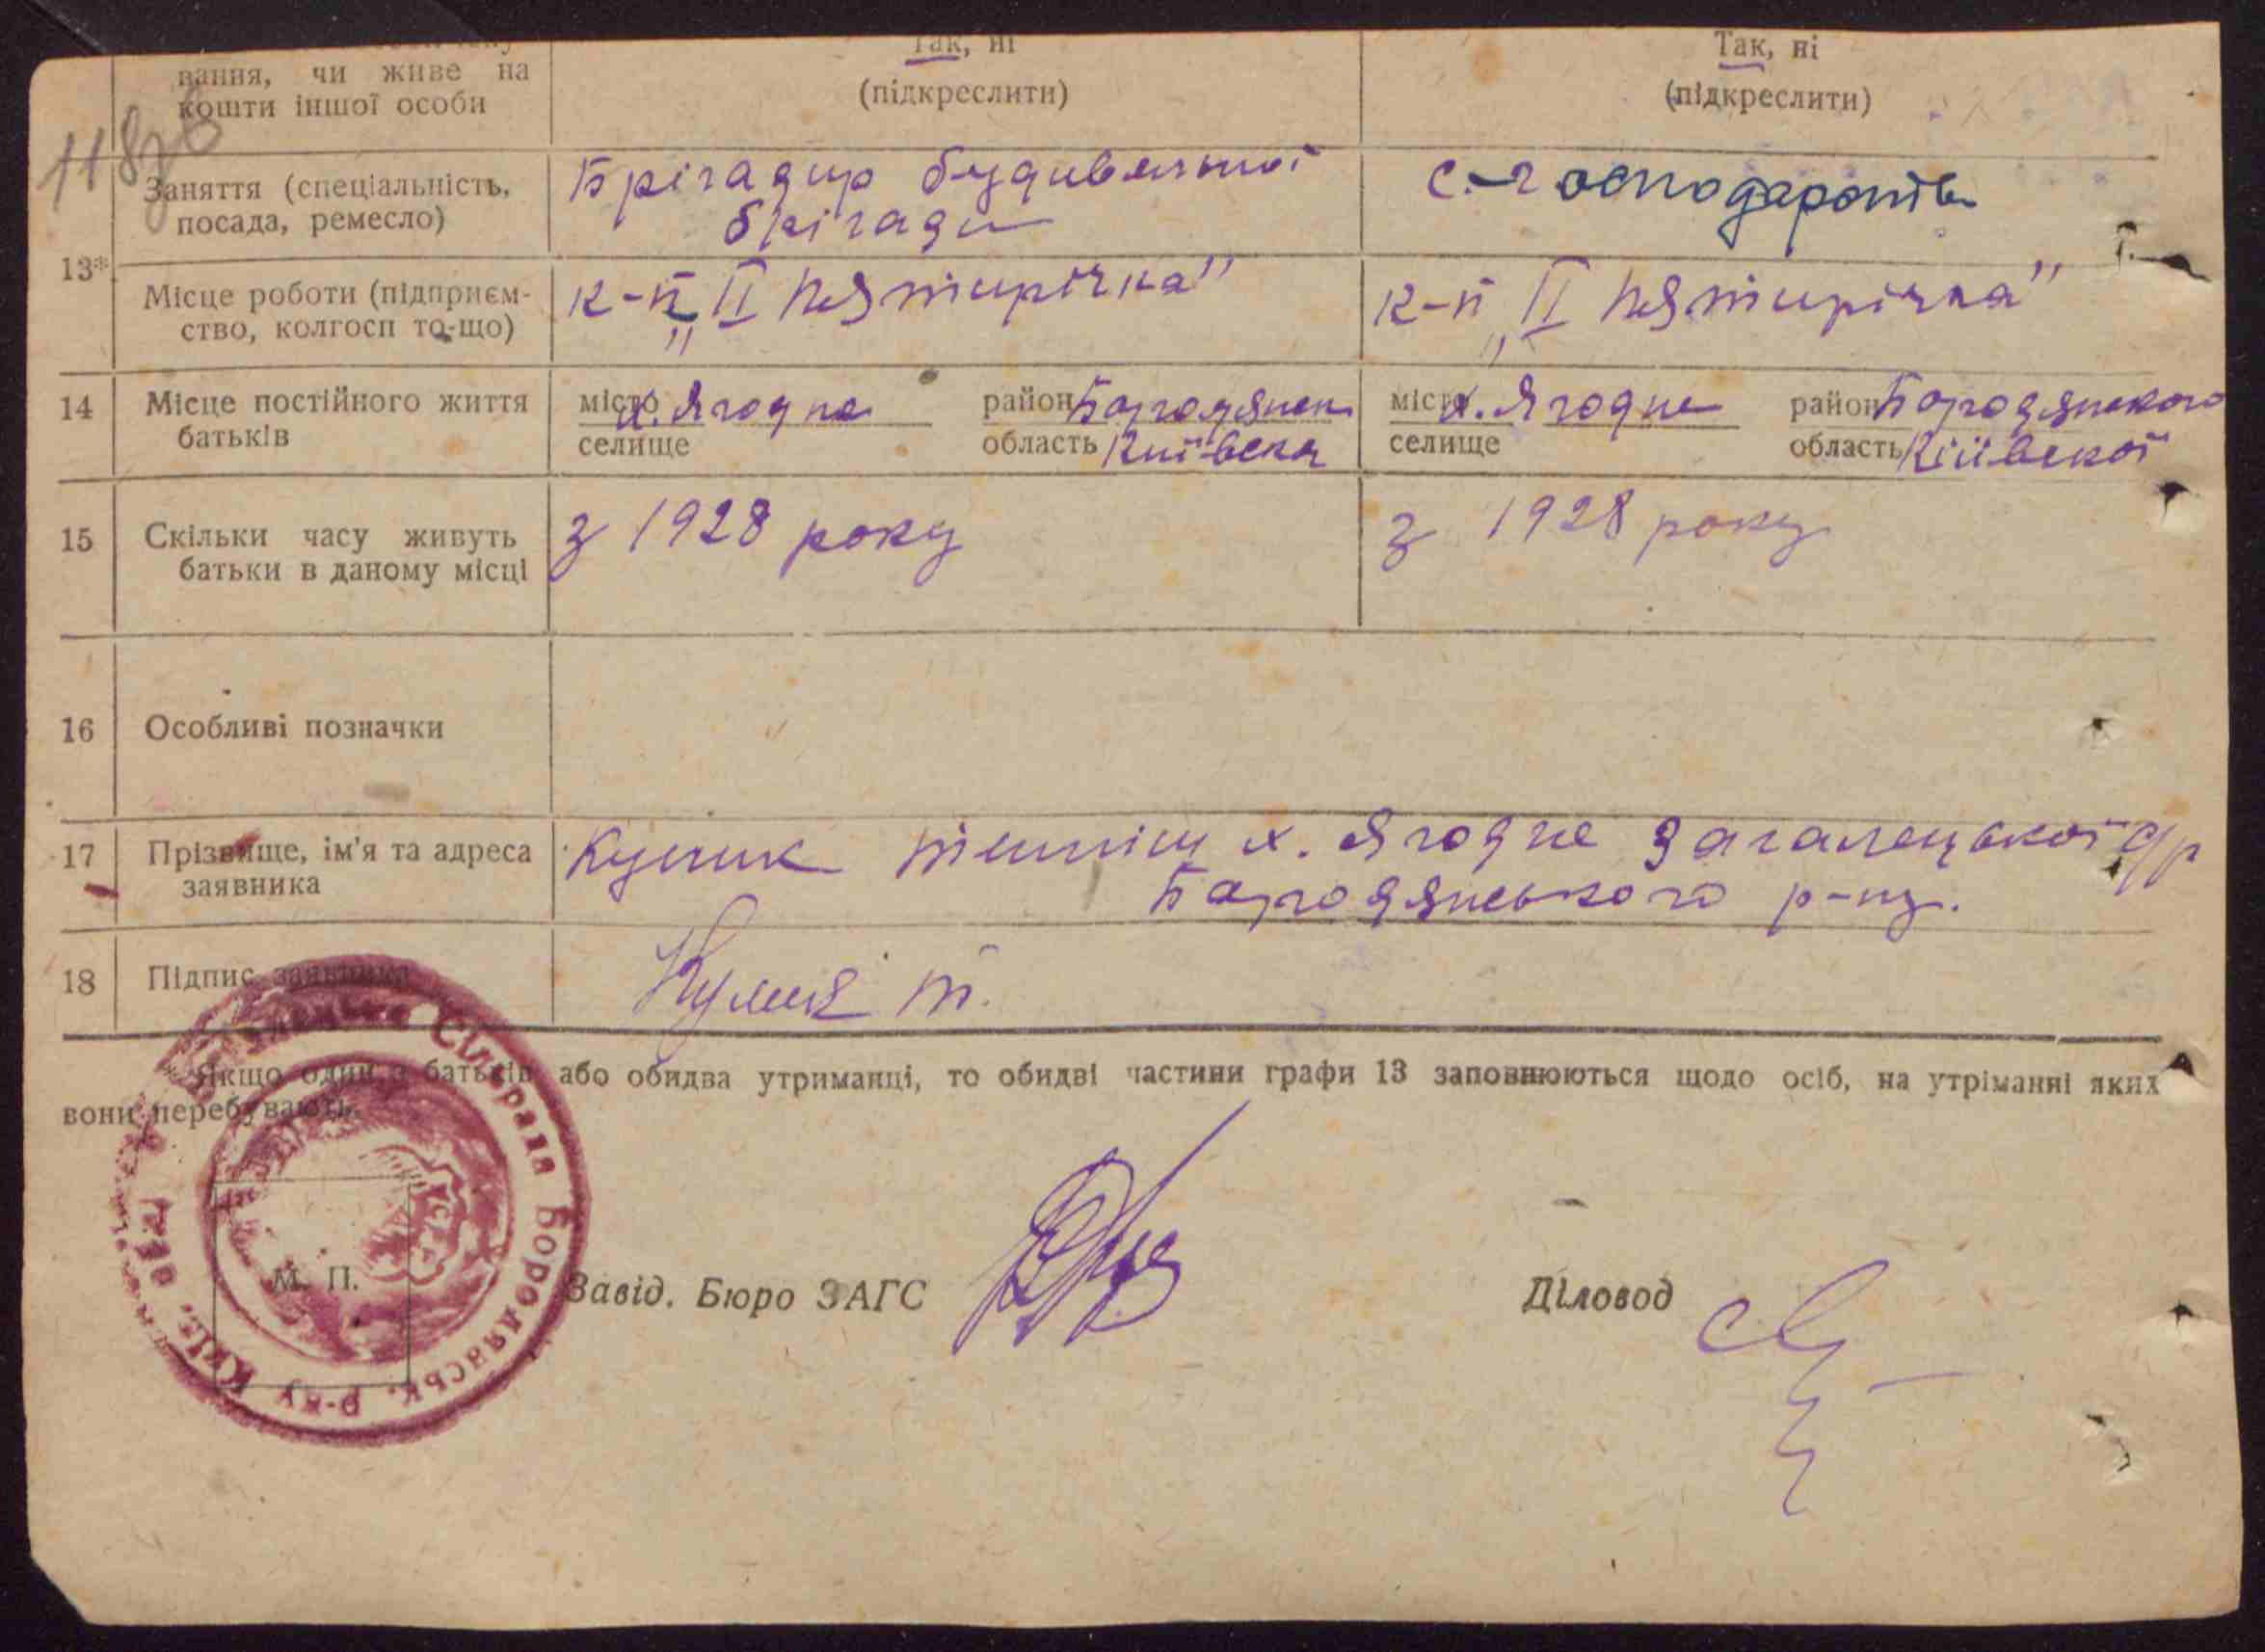 вання, чи живе на
кошти іншої особи
Так, ні
(підкреслити)
Так, ні
(підкреслити)
13*
Заняття (спеціальність,
посада, ремесло)
Брігадир будивельної
брігади
с.-господарств
Місце роботи (підприєм-
ство, колгосп то-що)
к-п „II Пятирічка"
к-п „II Пятирічка"
14
Місце постійного життя
батьків
місто х. Ягодне район Бородянськ
селище область Київська
місто х. Ягодне район Бородянского
селище область Київскої
15
Скільки часу живуть
батьки в даному місці
з 1928 року
з 1928 року
16
Особливі позначки
17
Прізвище, ім'я та адреса
заявника
Кулик х. Ягодне Загалецької с/р
Бородянського р-ну.
18
Підпис заявника
Кулик Т.
Якщо один з батьків або обидва утриманці, то обидві частини графи 13 заповнюються щодо осіб, на утріманні яких
вони перебувають.
Сілрада Бородянськ. р-ну Київ. обл.
М. П.
Завід. Бюро ЗАГС
Діловод